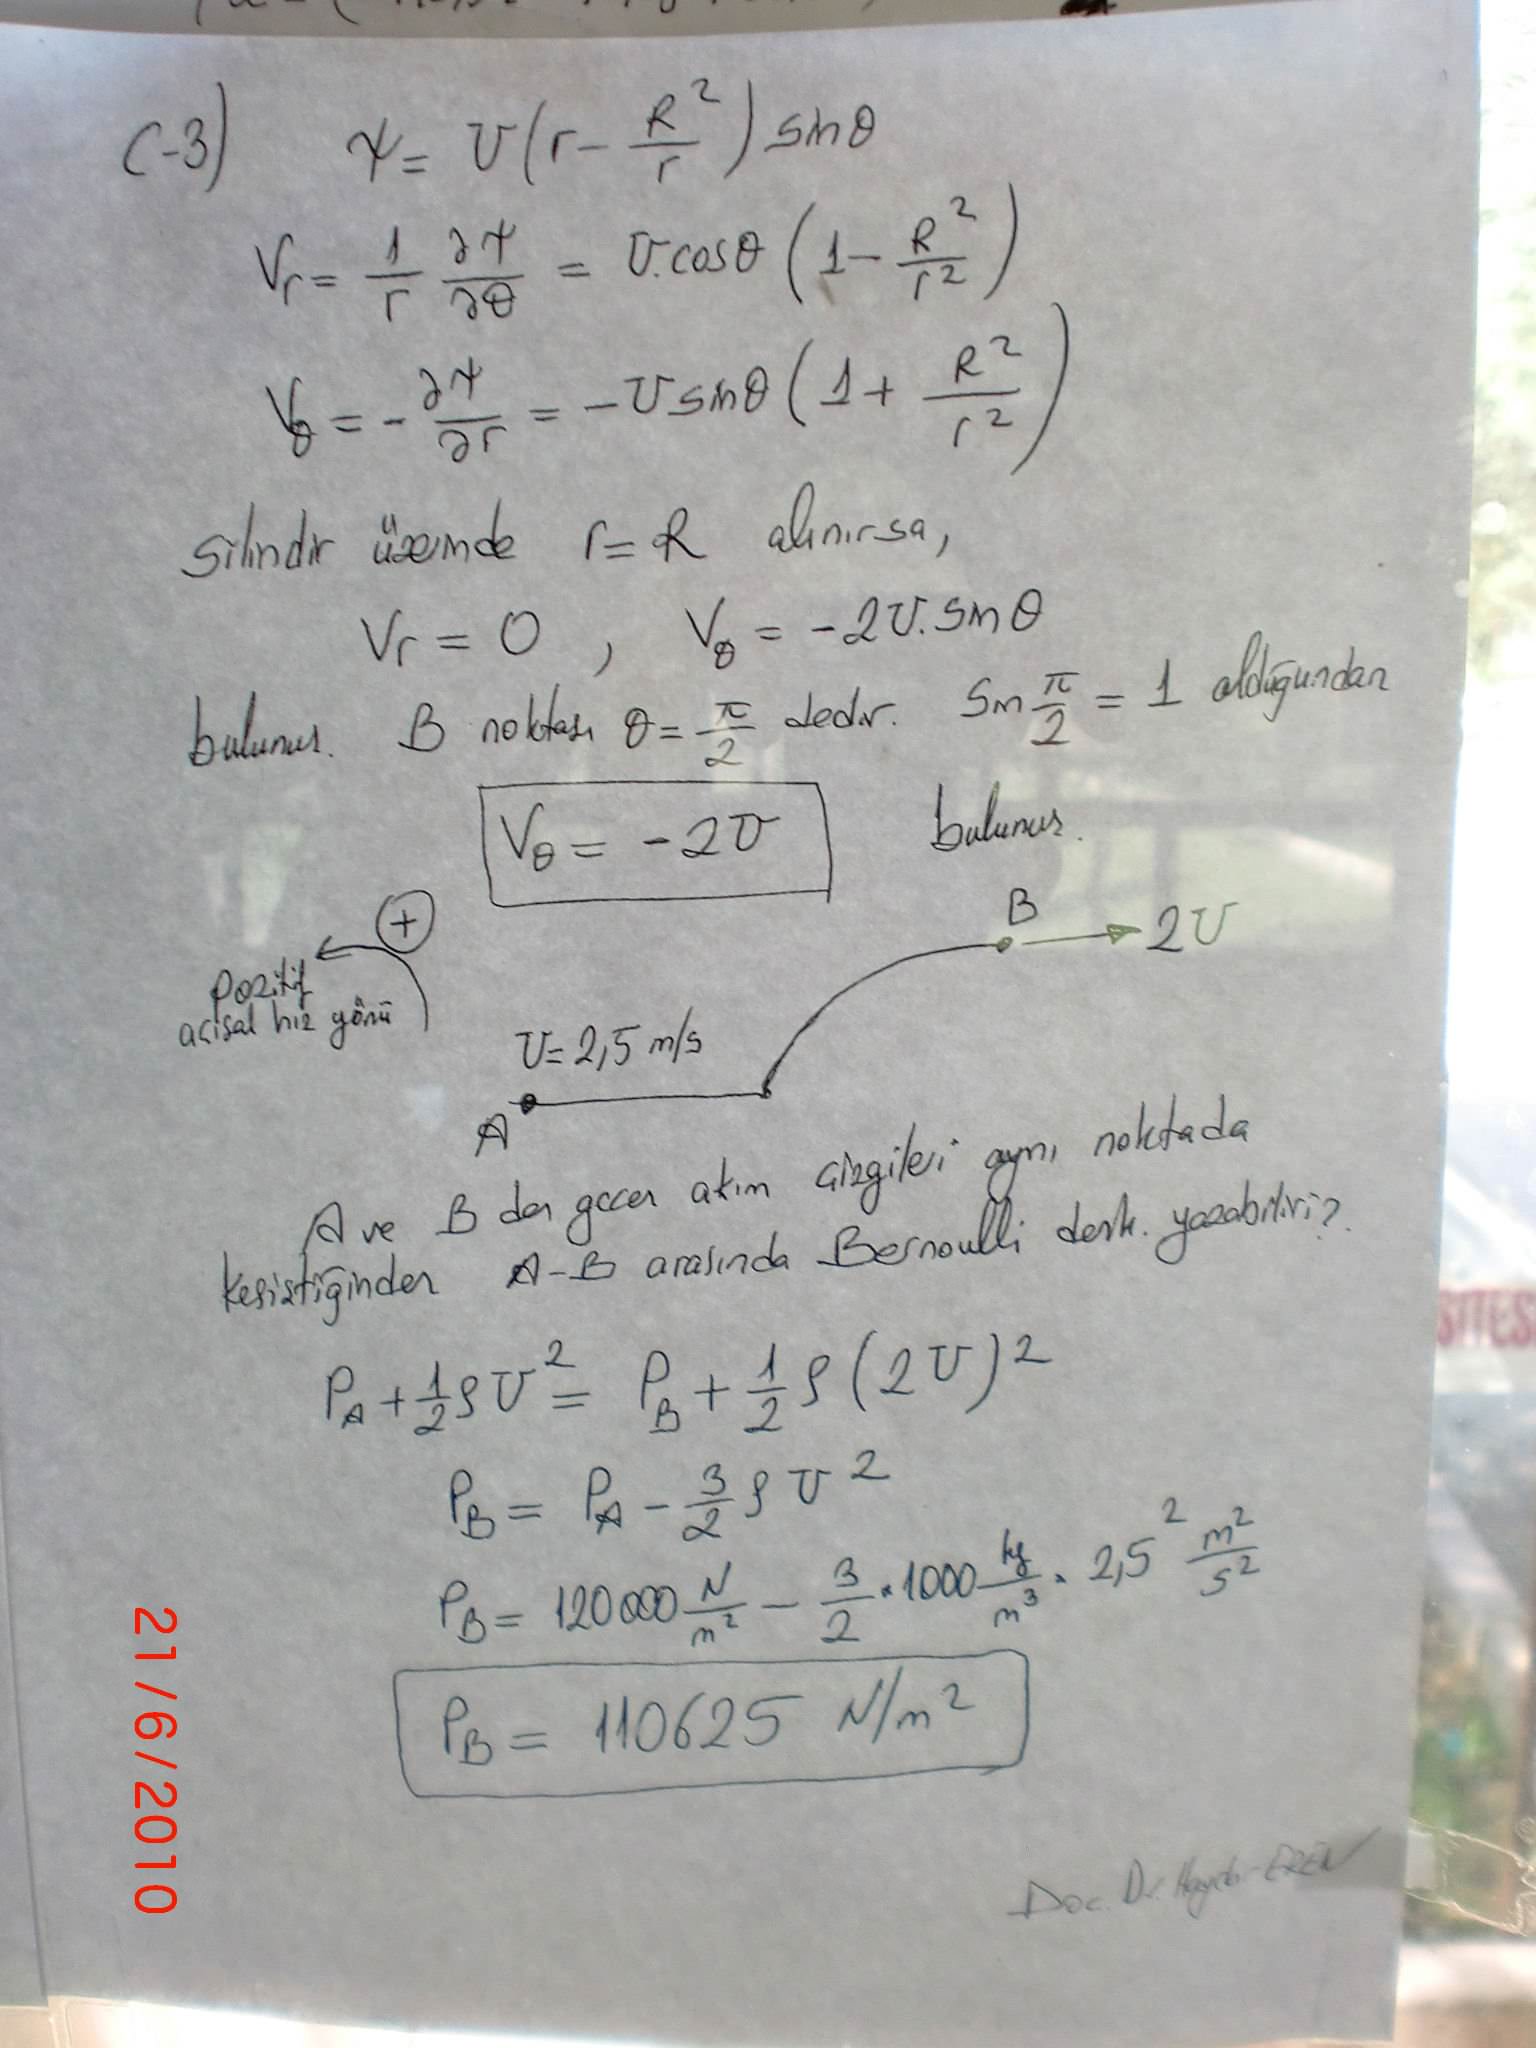 C-3) ψ = U(r - R²/r) sinθ
Vr = 1/r ∂ψ/∂θ = U.cosθ (1 - R²/r²)
Vθ = - ∂ψ/∂r = -U sinθ (1 + R²/r²)
Silindir üzerinde r=R alınırsa,
Vr = 0 , Vθ = -2U.sinθ
bulunur. B noktası θ = π/2 dedir. Sin π/2 = 1 olduğundan
Vθ = -2U bulunur.
+
B
2U
pozitif
açısal hız yönü
U=2,5 m/s
A
A ve B den geçen akım çizgileri aynı noktada
kesiştiğinden A-B arasında Bernoulli denk. yazabiliriz.
PA + 1/2 ρ U² = PB + 1/2 ρ (2U)²
PB = PA - 3/2 ρ U²
PB = 120000 N/m² - 3/2 * 1000 kg/m³ * 2,5² m²/s²
PB = 110625 N/m²
Doç. Dr. Haydar EREN
21/6/2010
SITES